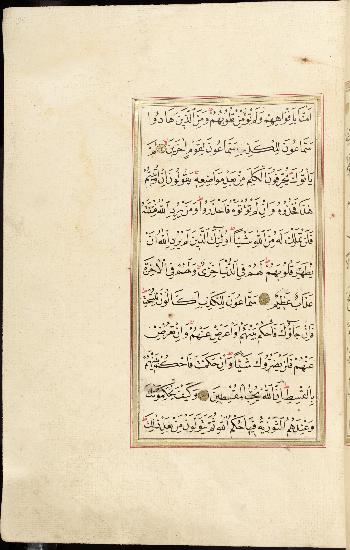 اٰمَنَّا بِاَفْوَاهِهِمْ وَلَمْ تُؤْمِنْ قُلُوبُهُمْ وَمِنَ الَّذِينَ هَادُوا
سَمَّاعُونَ لِلْكَذِبِ سَمَّاعُونَ لِقَوْمٍ اٰخَرِينَ لَمْ
يَأْتُوكَ يُحَرِّفُونَ الْكَلِمَ مِنْ بَعْدِ مَوَاضِعِهِ يَقُولُونَ اِنْ اُوتِيتُمْ
هٰذَا فَخُذُوهُ وَاِنْ لَمْ تُؤْتَوْهُ فَاحْذَرُوا وَمَنْ يُرِدِ اللّٰهُ فِتْنَتَهُ
فَلَنْ تَمْلِكَ لَهُ مِنَ اللّٰهِ شَيْئًا اُولٰئِكَ الَّذِينَ لَمْ يُرِدِ اللّٰهُ اَنْ
يُطَهِّرَ قُلُوبَهُمْ لَهُمْ فِي الدُّنْيَا خِزْيٌ وَلَهُمْ فِي الْاٰخِرَةِ
عَذَابٌ عَظِيمٌ سَمَّاعُونَ لِلْكَذِبِ اَكَّالُونَ لِلسُّحْتِ
فَاِنْ جَاؤُكَ فَاحْكُمْ بَيْنَهُمْ اَوْ اَعْرِضْ عَنْهُمْ وَاِنْ تُعْرِضْ
عَنْهُمْ فَلَنْ يَضُرُّوكَ شَيْئًا وَاِنْ حَكَمْتَ فَاحْكُمْ بَيْنَهُمْ
بِالْقِسْطِ اِنَّ اللّٰهَ يُحِبُّ الْمُقْسِطِينَ وَكَيْفَ يُحَكِّمُونَكَ
وَعِنْدَهُمُ التَّوْرٰيةُ فِيهَا حُكْمُ اللّٰهِ ثُمَّ يَتَوَلَّوْنَ مِنْ بَعْدِ ذٰلِكَ